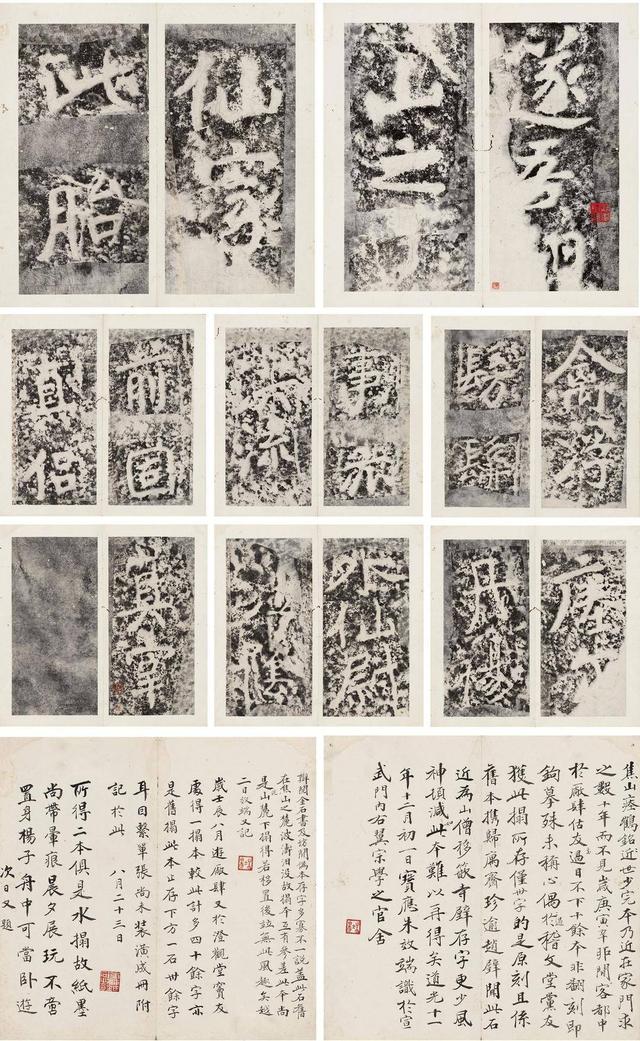 遂吾翔
山之下
仙家
此胎
禽浮
事亦
前固
真侶
瘞爾
丹楊
外仙尉
江陰
真宰
焦山瘞鶴銘近世少完本乃近在家門求
之數十年而不見歲庚寅辛卯間客都中
於廠肆估友過日不下十餘本非翻刻即
鉤摹殊未稱心偶於稽文堂黨友
獲此搨所存僅廿字的是原刻且係
舊本攜歸厲齋珍逾趙璧聞此石
近為山僧移嵌寺壁存字更少風
神頓減此本難以再得矣道光十一
年十二月初一日寶應朱端識於宣
武門內右翼宗學之官舍
金石書及坊間偽本存字多寡不一說蓋此石舊
在焦山之麓波濤汩沒故搨本互有參差此本尚
是山麓下搨得若移置後竝無此風趣矣越
二日端又記
歲壬辰八月遊廠肆又於澄觀堂寶友
處得一搨本較此計多四十餘字亦
是舊搨此本止存下方一石廿餘字
耳因繫單張尚未裝潢成冊附
記於此 八月二十三日
所得二本俱是水搨故紙墨
尚帶暈痕晨夕展玩不啻
置身楊子舟中可當臥遊
次日又題